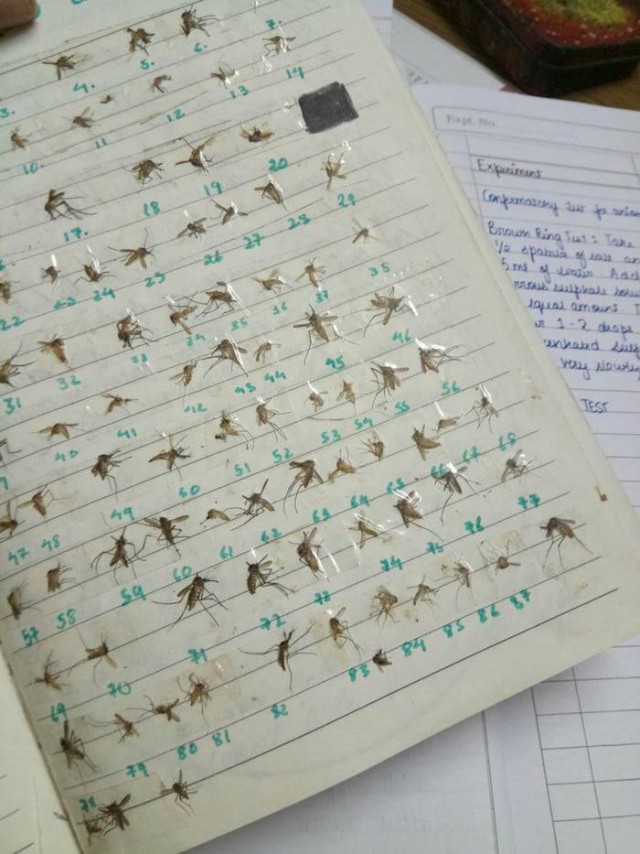 7.
4. 5. 6.
3. 12 13 14
10. 11
17. 18 19 20
22 23 24 25 26 27 28 29
31 32 33 34 35 36 37 35
40 41 42 43 44 45 46
47 48 49 50 51 52 53 54 55 56
57 58 59 60 61 62 63 64 65 66 67 68
69 70 71 72 73 74 75 76 77
78 79 80 81 82 83 84 85 86 87
Expt. No.
Experiment
Confirmatory test for
Brown Ring Test: Take
1/2 spatula of salt
5 ml of water. Add
sulphate
equal amount
1-2 drops
very slowly
TEST